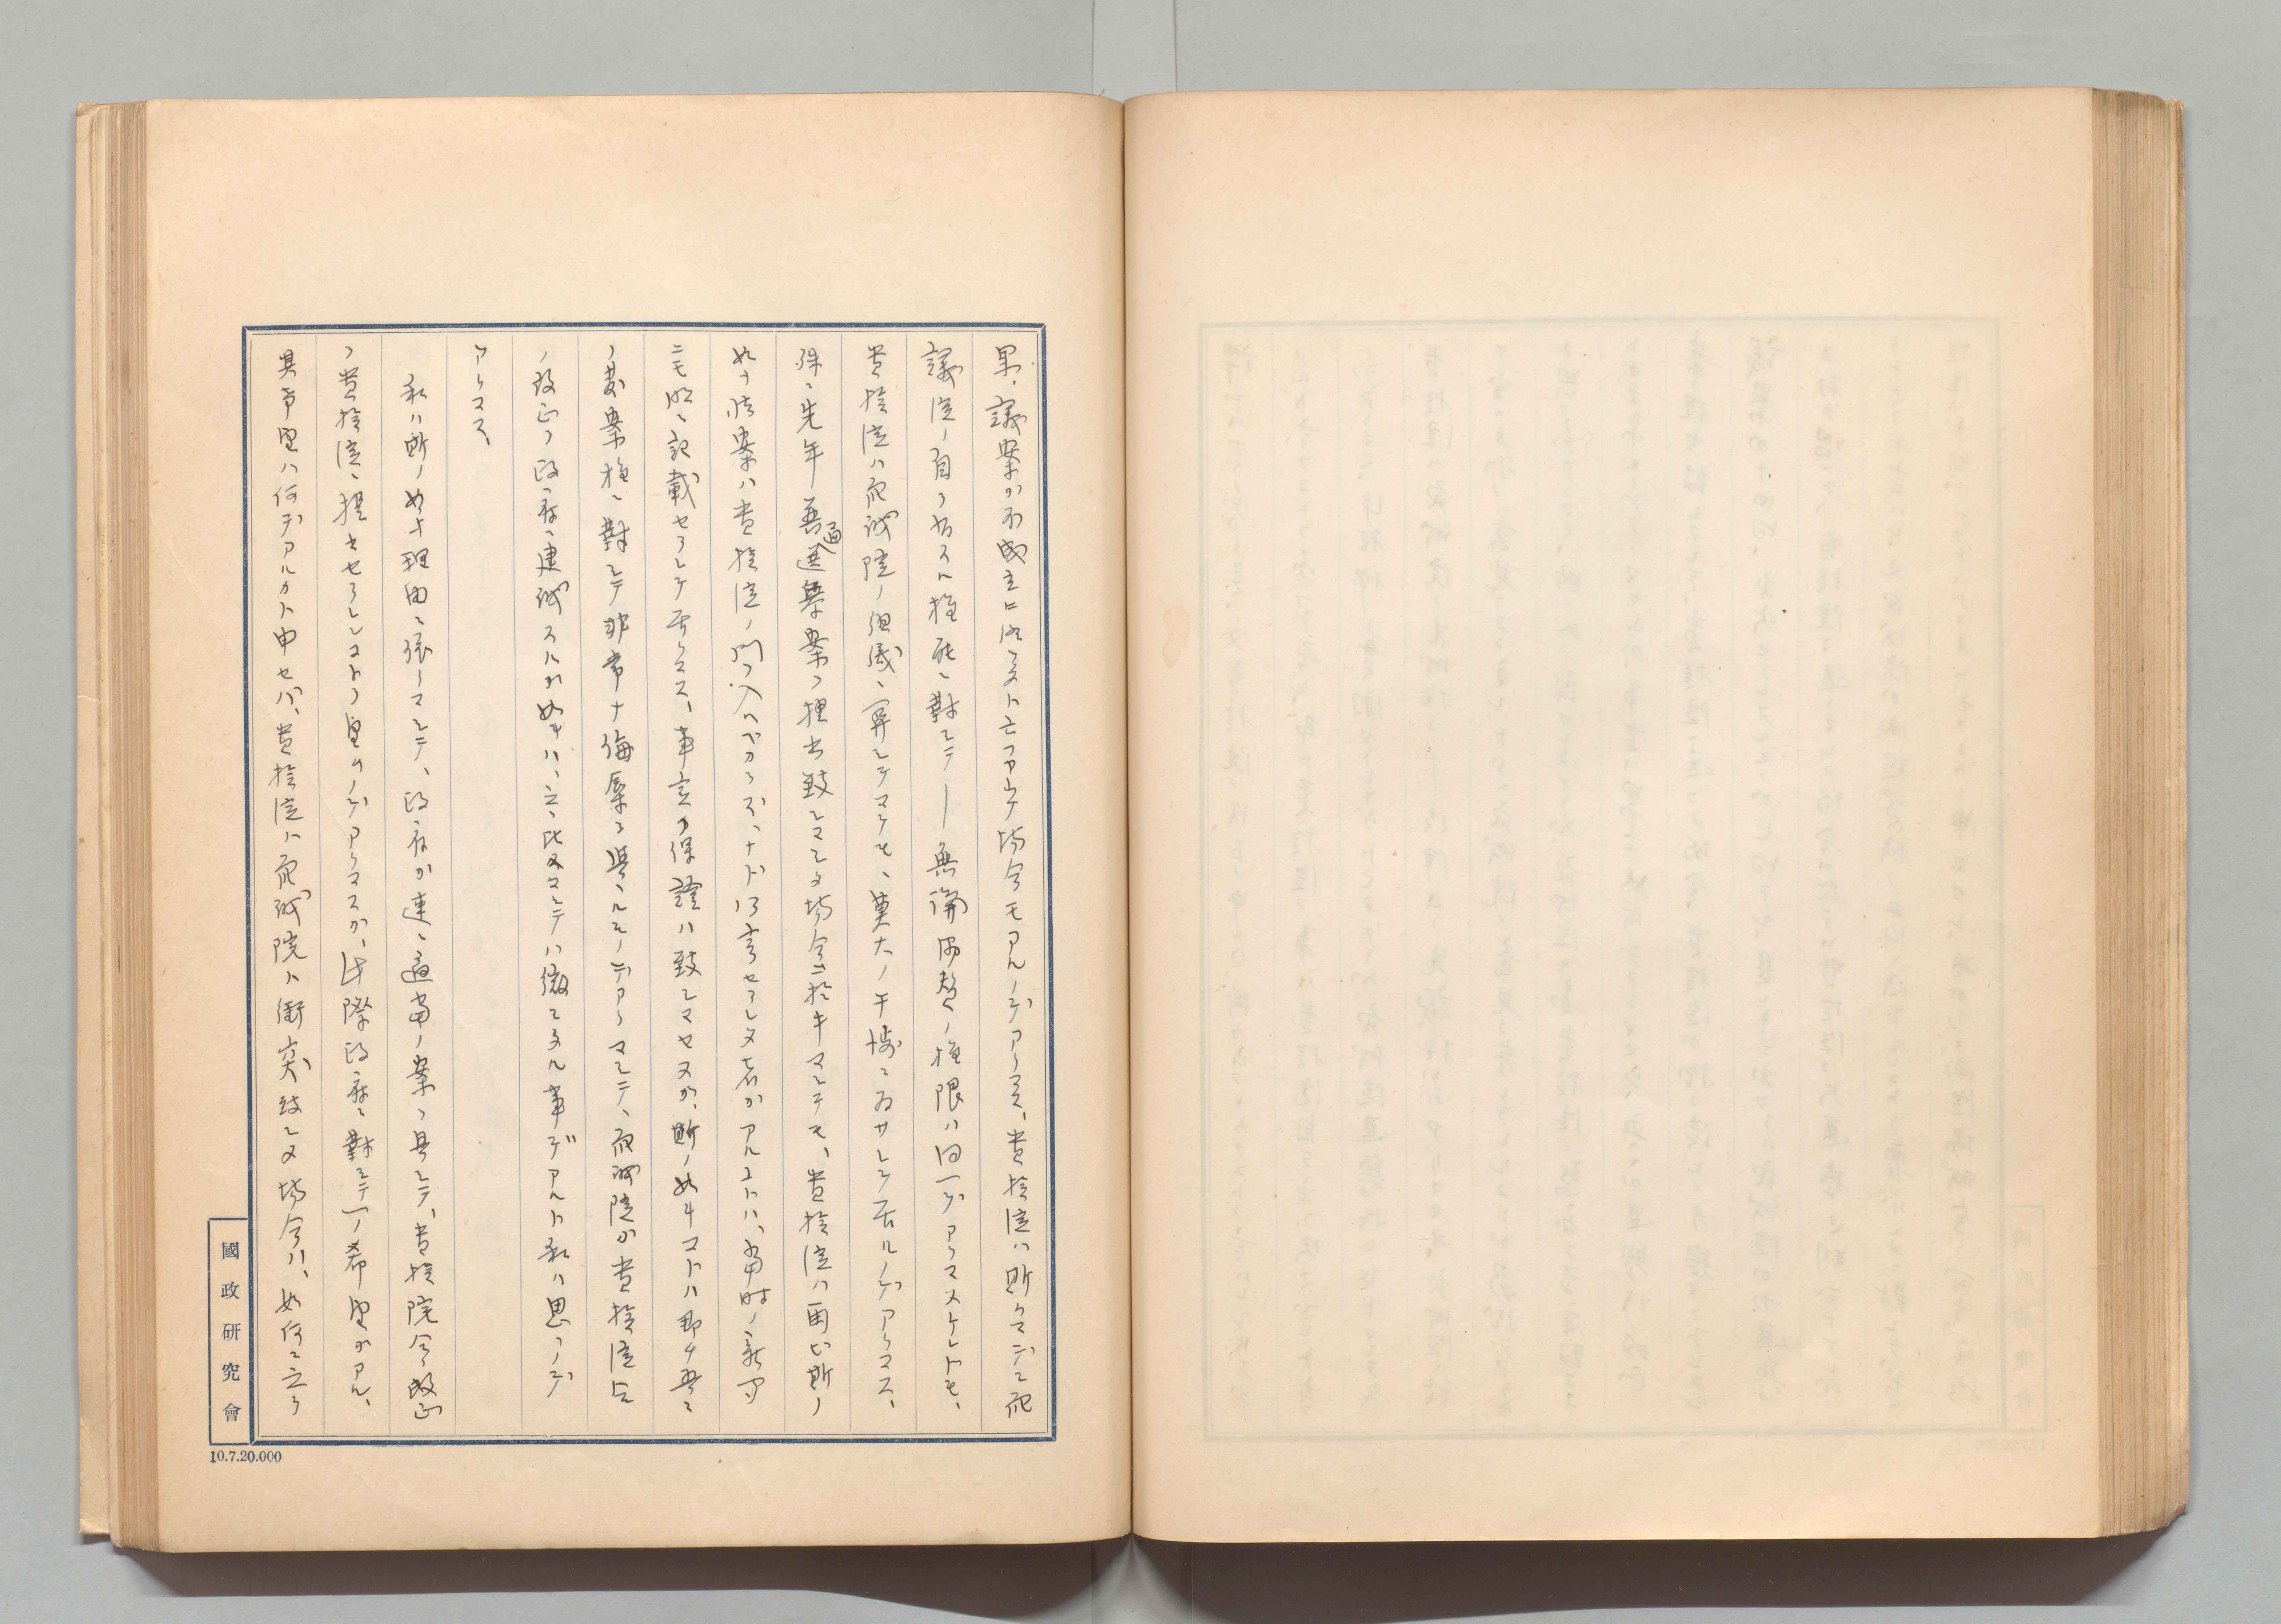 果、議案が不成立に終ラストモアルケ場合モアルノデアリマス、貴族院ハ斯クマデニ衆
議院ノ自ラ有スル権能ニ對シテ——無論協賛ノ権限ハ同一デアリマスケレドモ、
貴族院ハ衆議院ノ組織ニ關シテマデモ、莫大ノ干渉ヲ為サレテ居ルノデアリマス、
殊ニ先年普通選挙案ヲ提出致シマシタ場合ニ於キマシテモ、貴族院ハ再ビ斯ノ
如キ法案ハ貴族院ノ門ヲ入ルベカラズ、ナド稱言セラレタ者ガアルコトハ、當時ノ新聞
ニモ明ニ記載セラレテ居リマス、事實ノ保證ハ致シマセヌガ、斯ノ如キコトハ即チ吾々
ノ發案権ニ對シテ非常ナ侮辱ヲ與ヘルモノデアリマシテ、衆議院ガ貴族院令
ノ改正ヲ政府ニ建議スルガ如キハ、之ニ比べマシテハ微々タル事デアルト私ハ思フノデ
アリマス、
私ハ斯ノ如キ理由ニ依リマシテ、政府ガ速ニ適當ノ案ヲ具シテ、貴族院令ノ改正
ヲ貴族院ニ提出セラレンコトヲ望ムノデアリマスガ、此際政府ニ對シテ一ノ希望ガアル、
其希望ハ何デアルカト申セバ、貴族院ハ衆議院ト衝突致シタ場合ハ、如何ニ立ラ
國政研究會
10.7.20.000